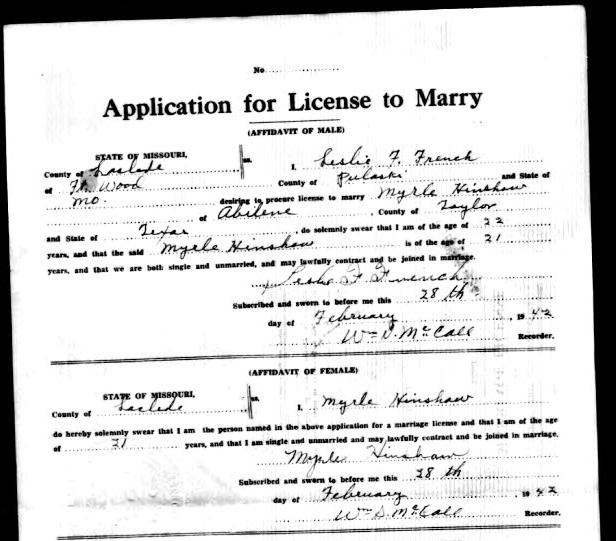 No.
Application for License to Marry
(AFFIDAVIT OF MALE)
STATE OF MISSOURI,
County of Laclede ss. I, Leslie F. French
of Ft. Wood County of Pulaski and State of
Mo. desiring to procure license to marry Myrle Hinshaw
of Abilene, County of Taylor
and State of Texas, do solemnly swear that I am of the age of 22
years, and that the said Myrle Hinshaw is of the age of 21
years, and that we are both single and unmarried, and may lawfully contract and be joined in marriage.
Leslie F French
Subscribed and sworn to before me this 28 th
day of February, 1942
Wm D. McCall Recorder.
(AFFIDAVIT OF FEMALE)
STATE OF MISSOURI,
County of Laclede ss. I, Myrle Hinshaw
do hereby solemnly swear that I am the person named in the above application for a marriage license and that I am of the age
of 21 years, and that I am single and unmarried and may lawfully contract and be joined in marriage.
Myrle Hinshaw
Subscribed and sworn to before me this 28 th
day of February, 1942
Wm D. McCall Recorder.